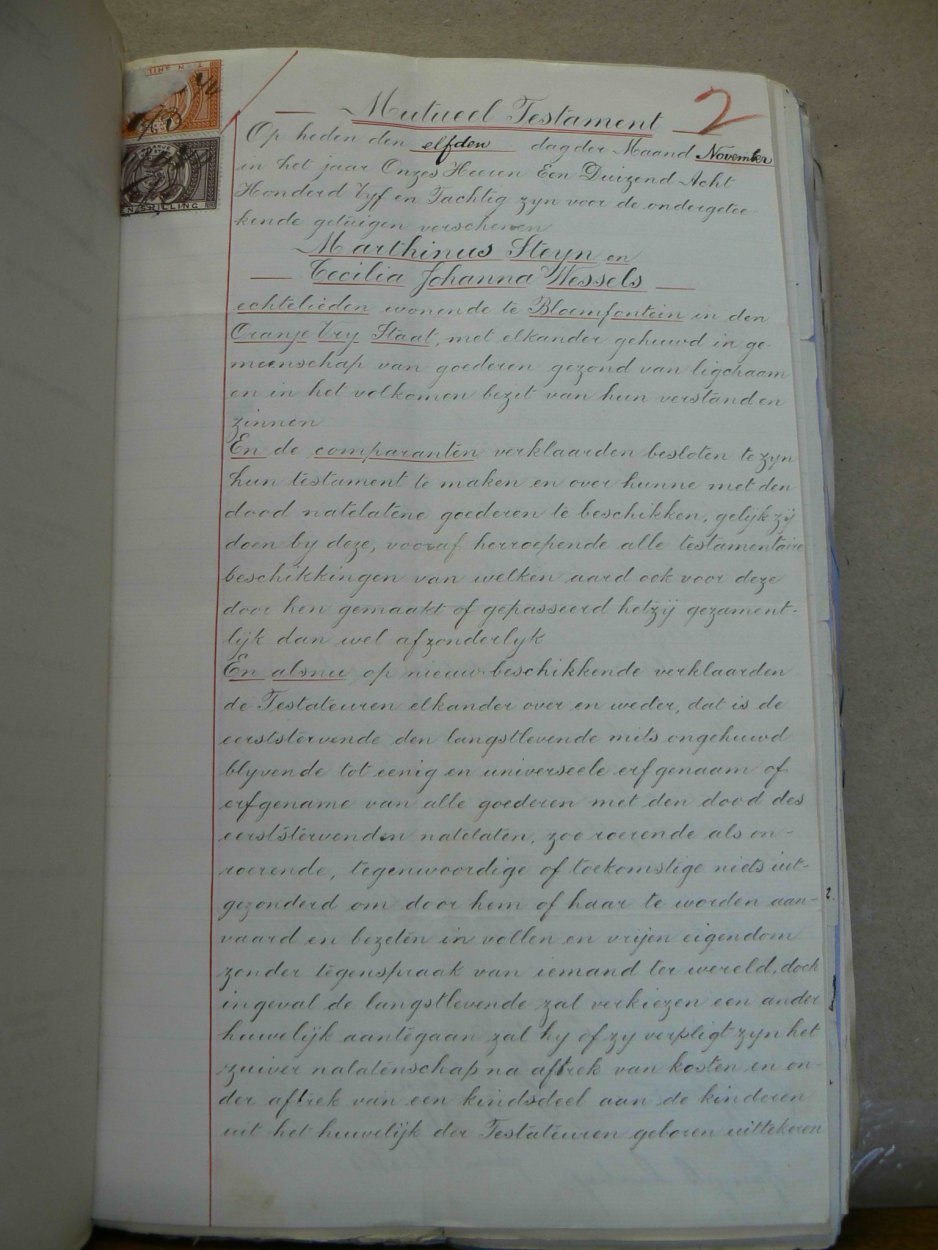 2
Mutueel Testament
Op heden den elfden dag der Maand November
in het jaar Onzes Heeren Een Duizend Acht
Honderd Vyf en Tachtig zyn voor de ondergetee
kende getuigen verschenen
Marthinus Steyn en
Cecilia Johanna Wessels
echtelieden wonende te Bloemfontein in den
Oranje Vry Staat, met elkander gehuwd in ge-
meenschap van goederen gezond van ligchaam
en in het volkomen bezit van hun verstand en
zinnen
En de comparanten verklaarden besloten te zyn
hun testament te maken en over hunne met den
dood natelatene goederen te beschikken, gelijk zij
doen by deze, vooraf herroepende alle testamentaire
beschikkingen van welken aard ook voor deze
door hen gemaakt of gepasseerd hetzij gezament-
lijk dan wel afzonderlyk
En alsnu op nieuw beschikkende verklaarden
de Testateuren elkander over en weder, dat is de
eerststervende den langstlevende mits ongehuwd
blyvende tot eenig en universeele erfgenaam of
erfgename van alle goederen met den dood des
eerststervenden natelaten, zoo roerende als on-
roerende, tegenwoordige of toekomstige niets uit-
gezonderd om door hem of haar te worden aan-
vaard en bezeten in vollen en vrijen eigendom
zonder tegenspraak van iemand ter wereld, doch
ingeval de langstlevende zal verkiezen een ander
huwelijk aantegaan zal hy of zy verpligt zyn het
zuiver nalatenschap na aftrek van kosten en on-
der aftrek van een kindsdeel aan de kinderen
uit het huwelijk der Testateuren geboren uittekeren